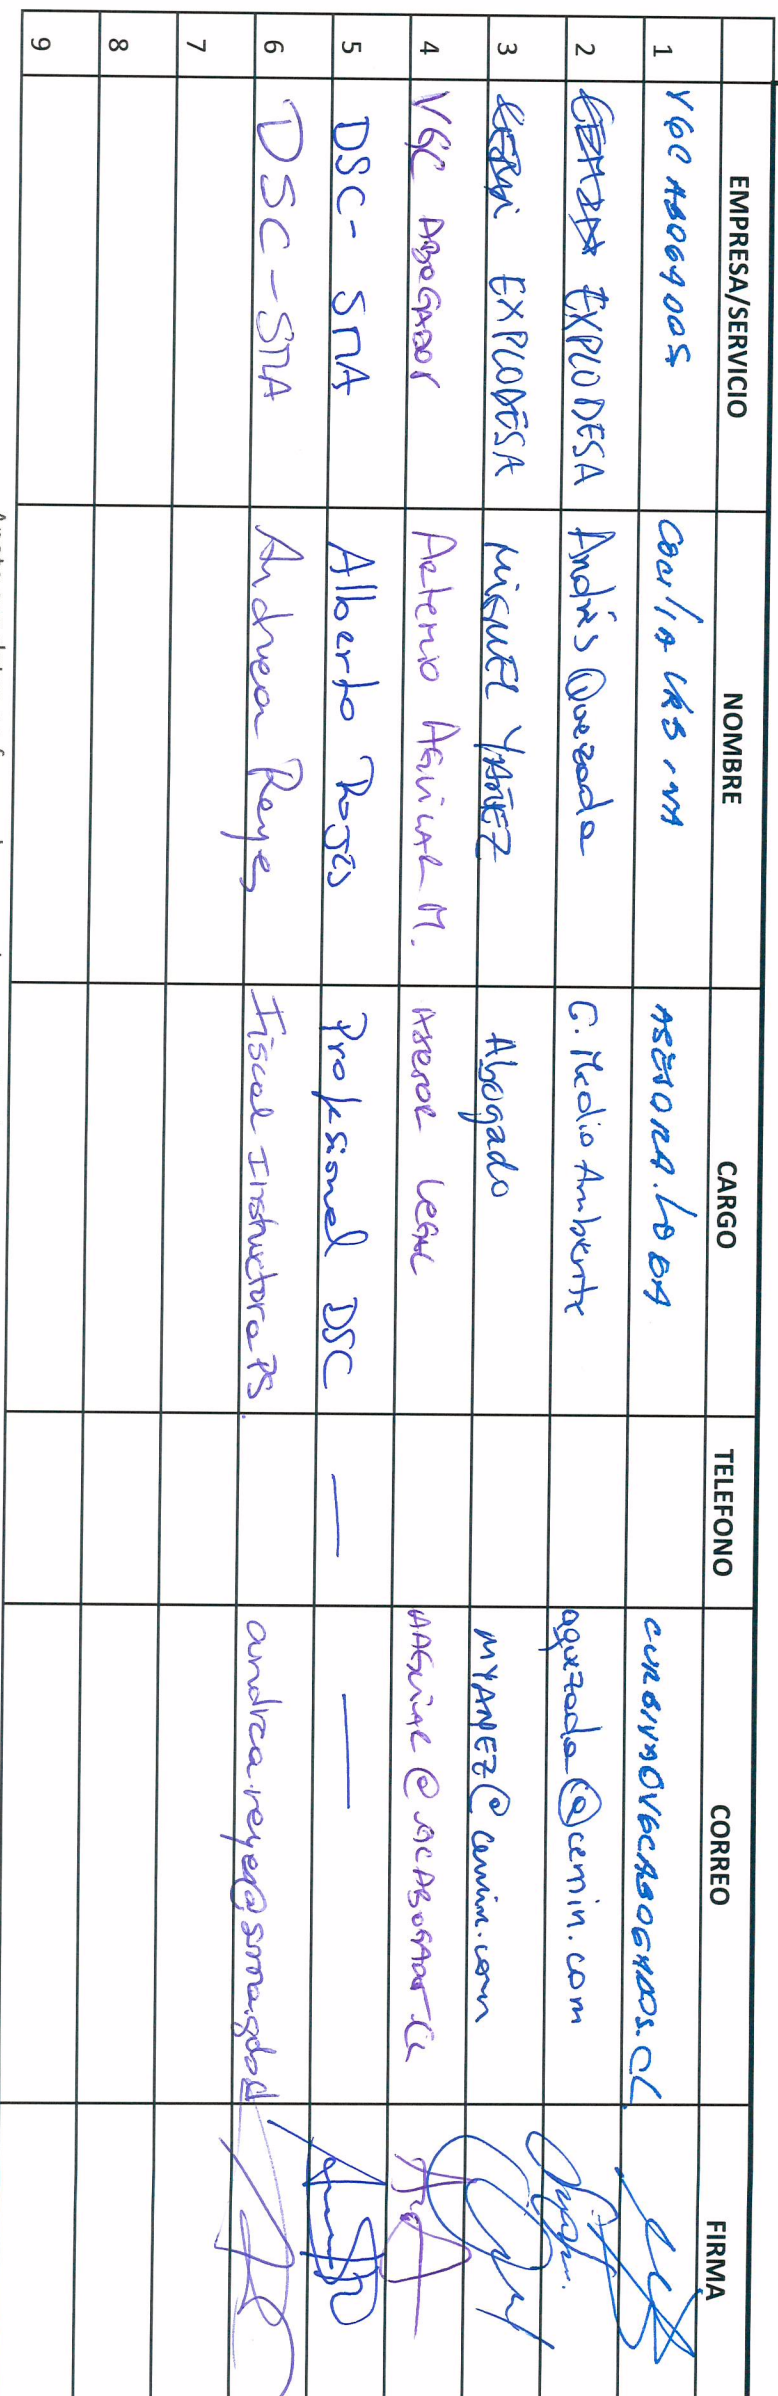 EMPRESA/SERVICIO NOMBRE CARGO TELEFONO CORREO FIRMA
1 VGC ABOGADOS CECILIA URBINA ASESORA LEGAL CURBINA@VGCABOGADOS.CL
2 EXPLODESA Andrés Quezada G. Medio Ambiente aquezada@cemin.com
3 EXPLODESA MIGUEL YAÑEZ Abogado MYANEZ@cemin.com
4 VGC ABOGADOS ARTEMIO AGUILAR M. ASESOR LEGAL AAGUILAR@VGCABOGADOS.CL
5 DSC - SMA Alberto Rojas Profesional DSC — —
6 DSC - SMA Andrea Reyes Fiscal Instructora PS. andrea.reyes@sma.gob.cl
7
8
9